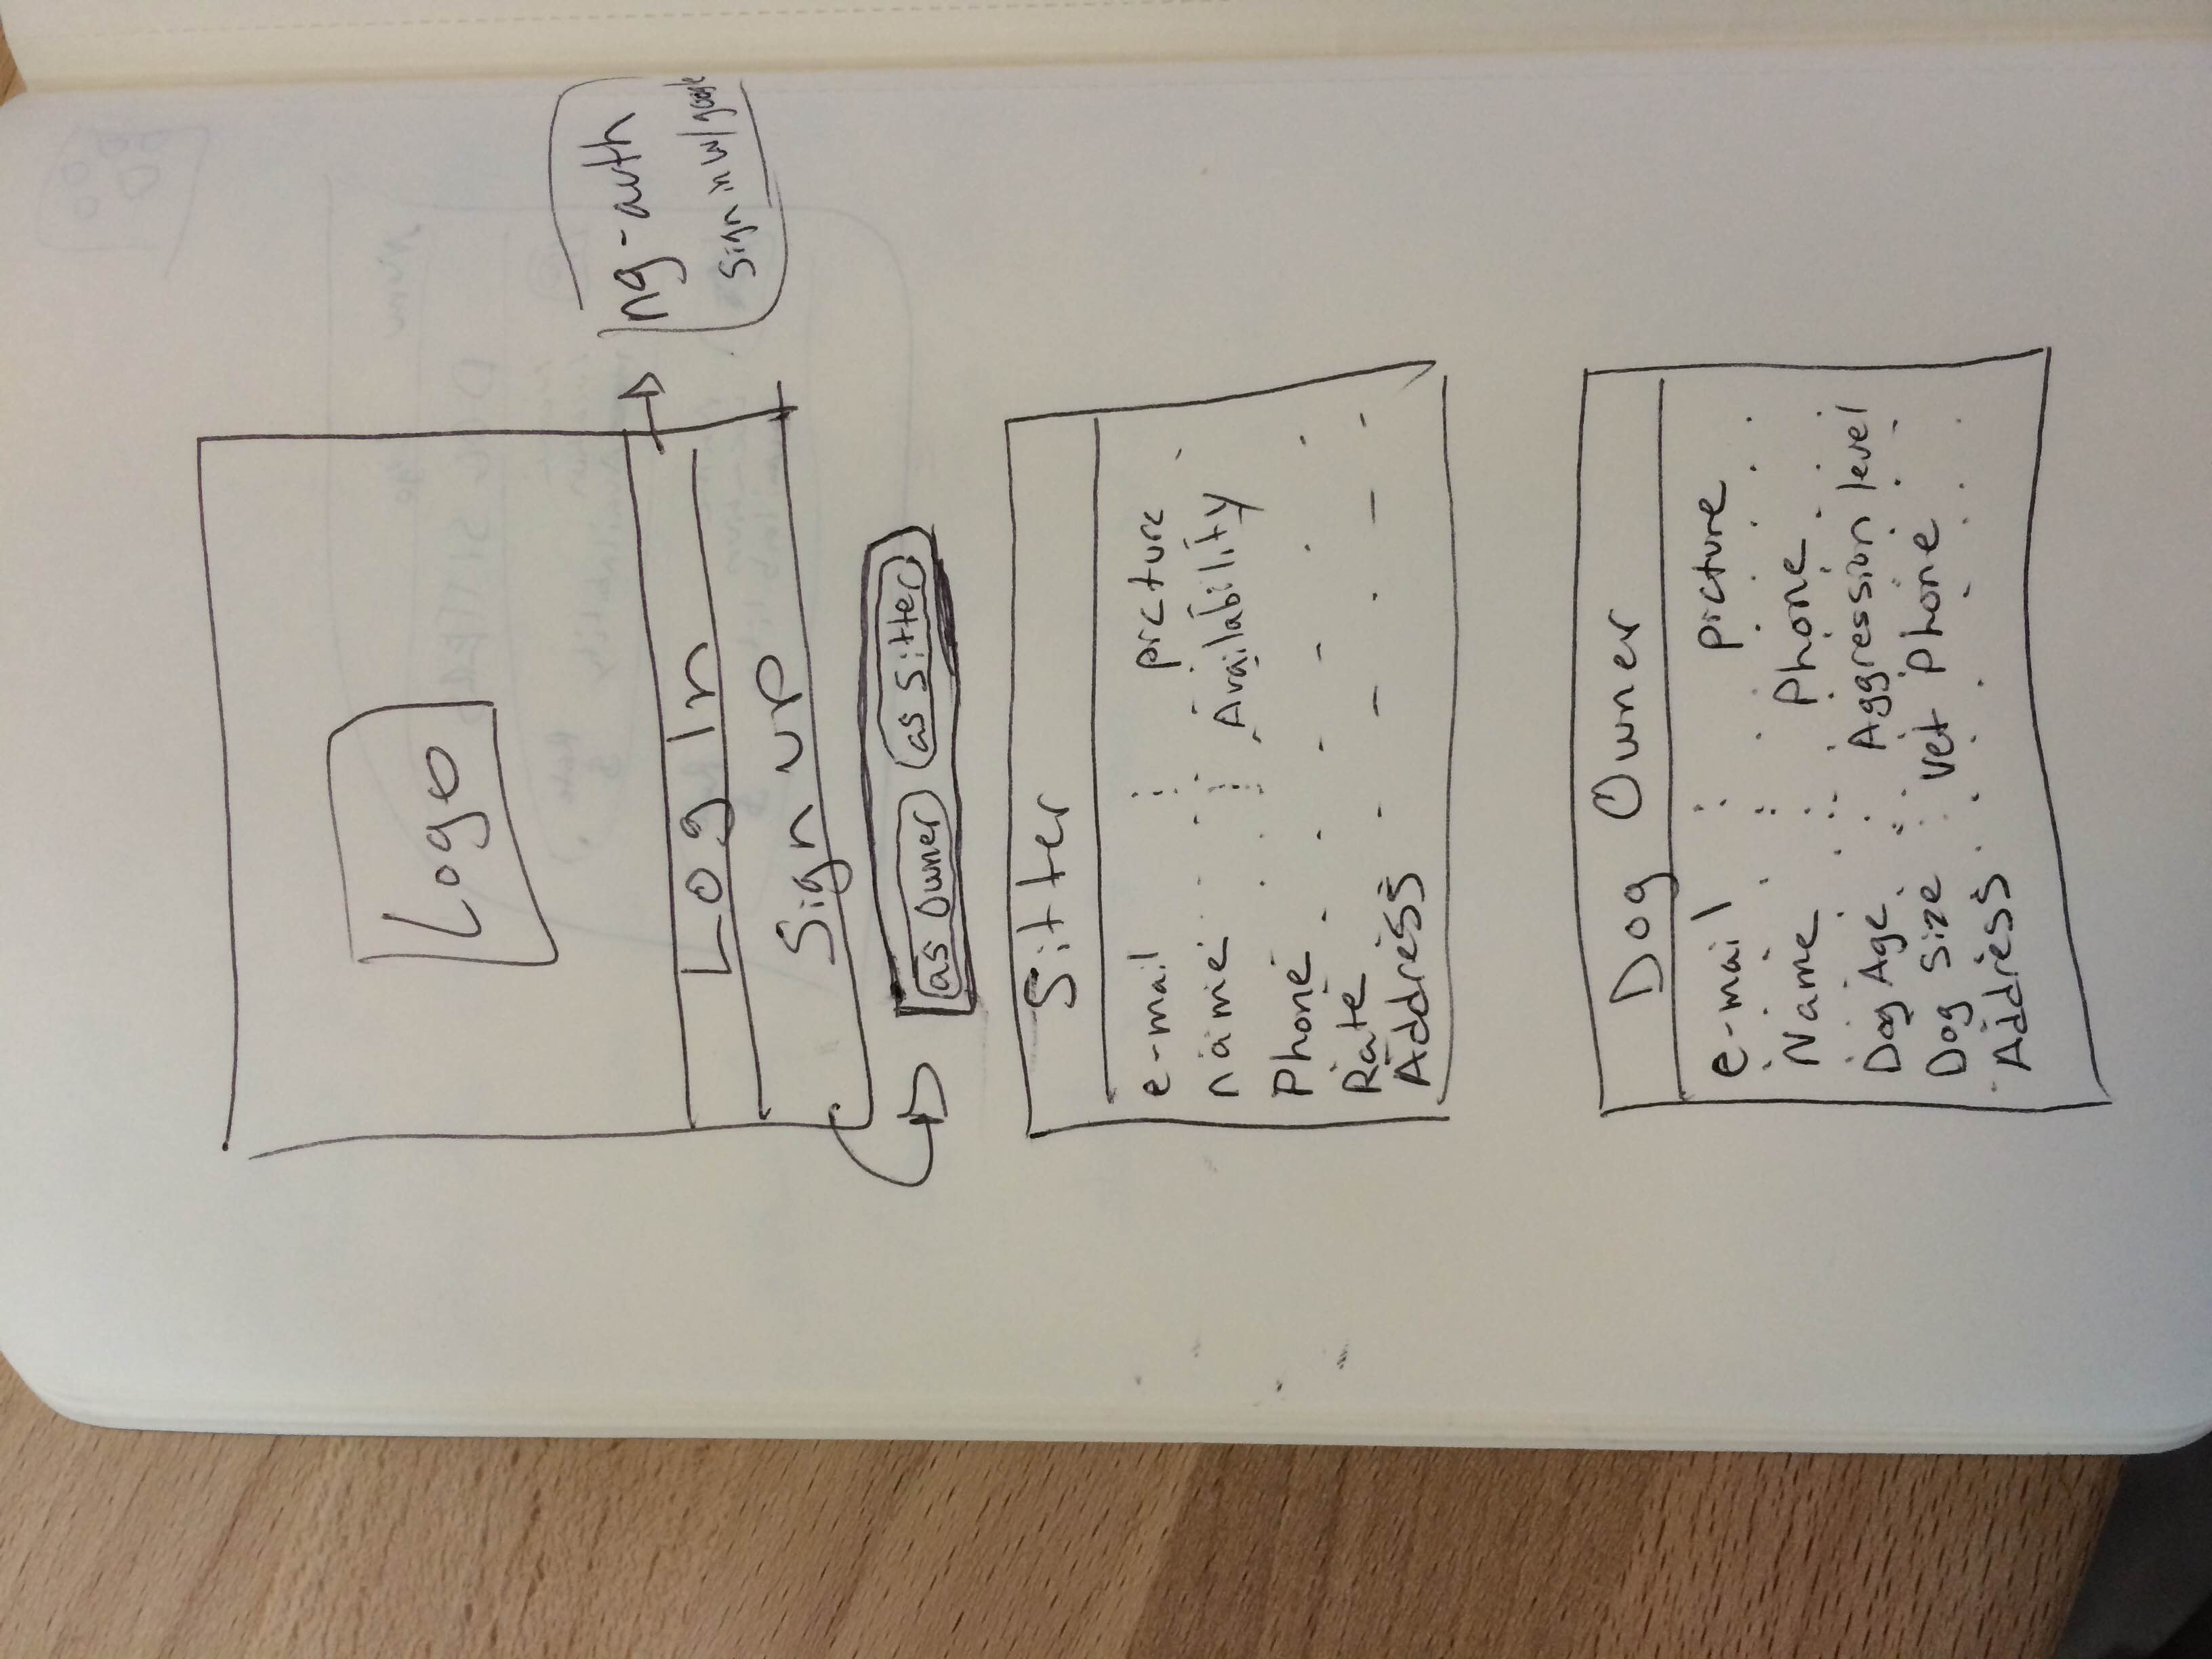 Logo
Log In
ng-auth
sign in w/ google
Sign up
as Owner as Sitter
Sitter
e-mail picture
name Availability
Phone
Rate
Address
Dog Owner
e-mail picture
Name Phone
Dog Age Aggression level
Dog Size vet Phone
Address